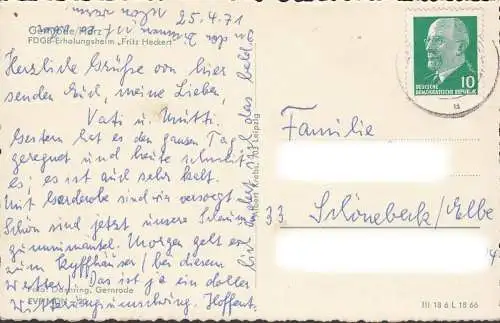 25.4.71
Gernrode/Harz
FDGB-Erholungsheim „Fritz Heckert“
Herzliche Grüße von hier
senden Euch, meine Lieben,
Vati u. Mutti.
Gestern hat es den ganzen Tag
geregnet und heute schneit
es; es ist auch sehr kalt.
Mit Garderobe sind wir versorgt.
Schön sind jetzt unsere Schaum-
gummimäntel. Morgen geht es
zum Kyffhäuser (bei diesem
Wetter). Das ist ja ein doller
Witterungsumschwung. Hoffent-
bald
das
sich
ändert
Foto: Döhring, Gernrode
703 Leipzig
III 18 6 L 18 66
10
DEUTSCHE
DEMOKRATISCHE REPUBLIK
Familie
33 Schönebeck/Elbe